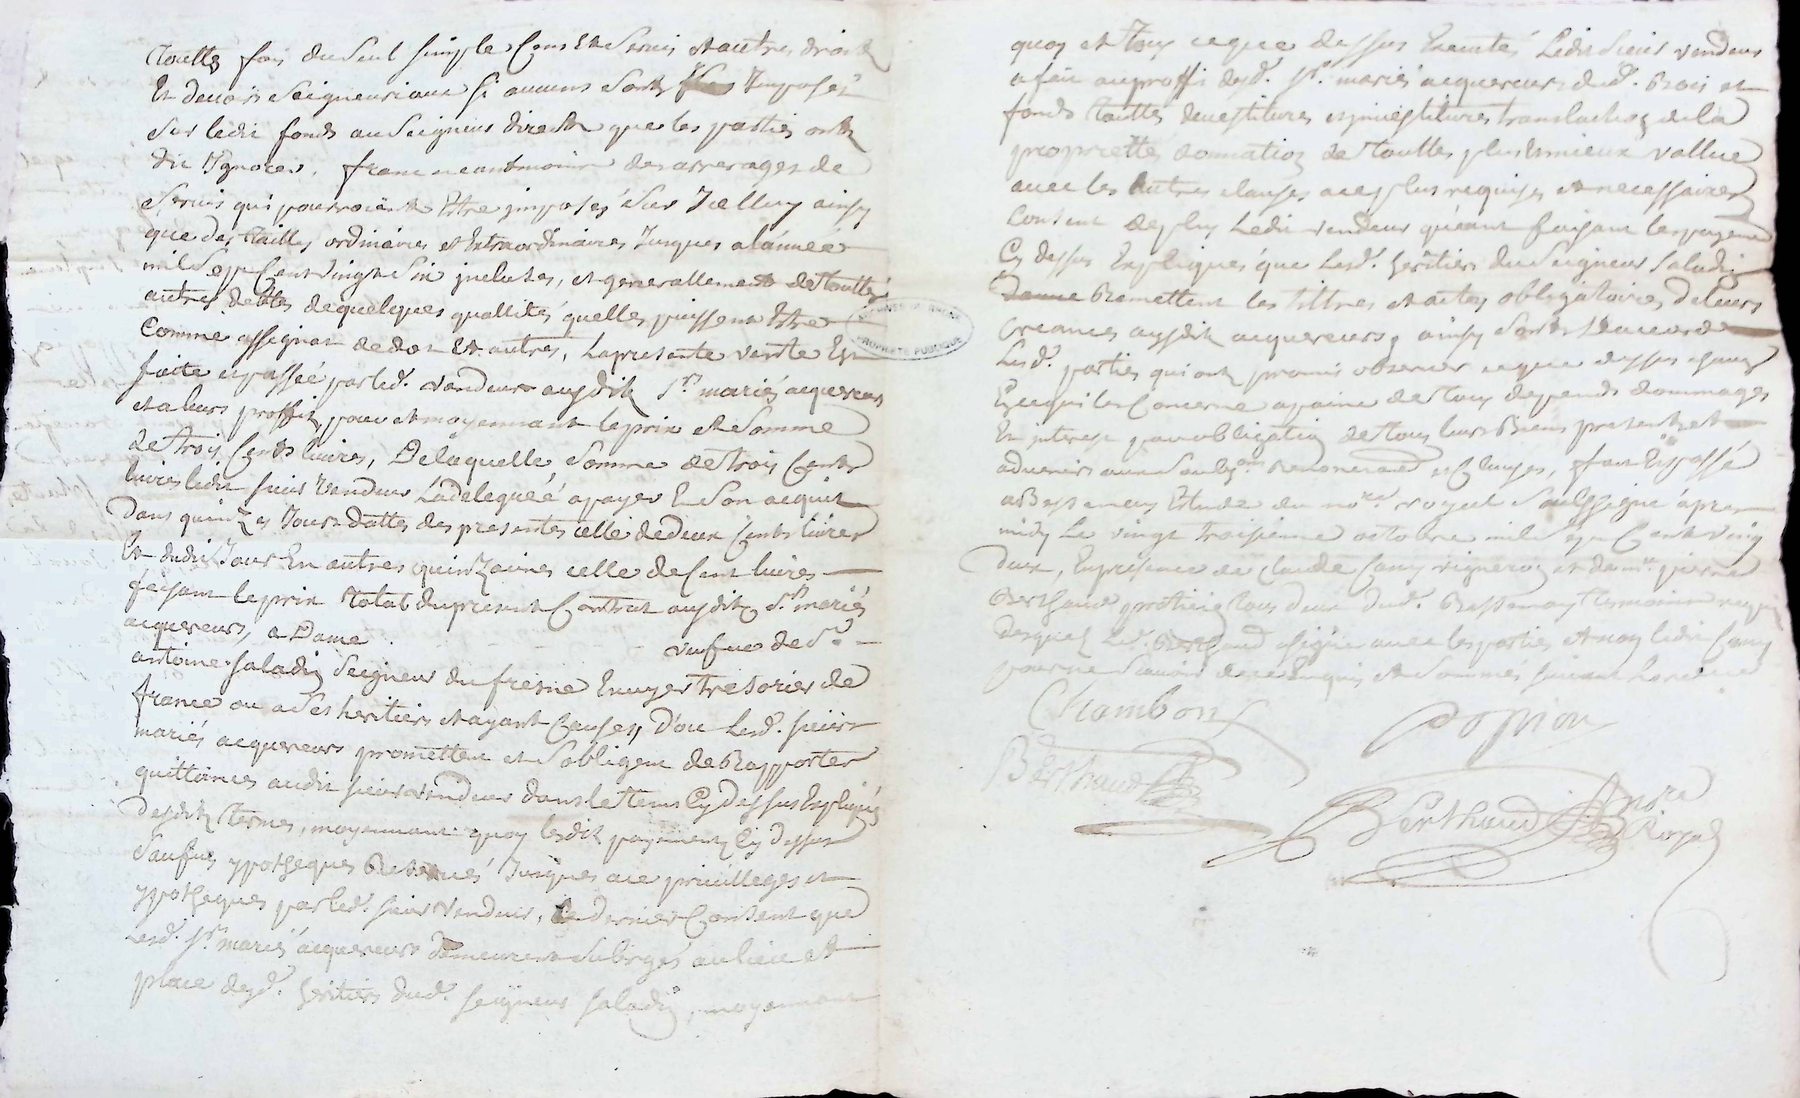 touttes fois du seul simple Cens Et servis et autres droits
Et devoirs seigneuriaux si aucuns sont Imposés
sur ledit fonds au seigneur direct que les parties ont
dit Ignorer, franc neantmoins des arrerages de
servis qui pourroient Estre imposés sur Icelluy ainsy
que des tailles ordinaires et Extraordinaires Jusques a l'année
mil sept Cent vingt six incluses, et generallement de touttes
autres debtes de quelques quallités quelles puissent Estre
Comme assignat de dot Et autres, la presente vente Est
faite et passée par led. vendeur ausdits Srs mariés acquereurs
et a leurs proffits pour et moyennant le prix et somme
de trois Cents livres, De laquelle somme de trois Cents
livres ledit sieur vendeur La delegueé a payer En son acquit
dans quinzes Jours dattes des presentes celle de deux Cents livres
Et dudit Jour En autres quinzaines celle de Cent livres
faisant le prix total du present Contrat ausdits Srs mariés
acquereurs, a Dame veufve de Sr
antoine saladin seigneur du fresne Ecuyer tresorier de
france ou a ses heritiers et ayant Causes, D'ou Lesd. sieurs
mariés acquereurs promettent et s'obligent de Rapporter
quittances audit sieur vendeur dans le tems Cy dessus Expliqué
desdits termes, moyennant quoy lesdits payements Cy dessus
saufus ypotheques Reservés Jusques aux privilleges et
ypotheques par led. sieur vendeur, Ce dernier Consent que
Lesd. Srs mariés acquereurs demeurent subrogés au lieu et
place desd. heritiers dud. seigneur saladin, moyennant
quoy et tout ce que dessus Executés Ledit sieur vendeur
a fait au proffit desd. Srs mariés acquereurs dud. Bois et
fonds touttes devestitures et investitures translation de la
propriettés donnation de touttes plus et mieux vallue
avec les autres clauses a ce plus requises et necessaires
Consent de plus Ledit vendeur qu'en faisant les payements
Cy dessus Expliqués que Lesd. heritiers du seigneur saladin
Remettent les tittres et actes obligatoires de leurs
Creances ausdits acquereurs, ainsy sont d'accord
Lesd. parties qui ont promis observer ce que dessus chacun
En ce qui les Concerne a paine de tous depends dommages
Et interest par obligation de tous leurs Biens presents et
advenirs aux renonciations et Clauses, fait Et passé
a Bessenay Etude du nore royal soussigné après
midy Le vingt troisieme octobre mil sept Cent vingt
deux, En presence de Claude Camy vigneron et de mre pierre
Berthaud praticien tous deux dud. Bessenay temoins requis
desquels Led. Berthaud a signé avec les parties et non ledit Camy
pour ne scavoir de ce Enquis Et sommés suivant Lordonnance
Chambon
Berthaud
Berthaud Nore
Royal
ARCHIVES DU RHONE
PROPRIÉTÉ PUBLIQUE